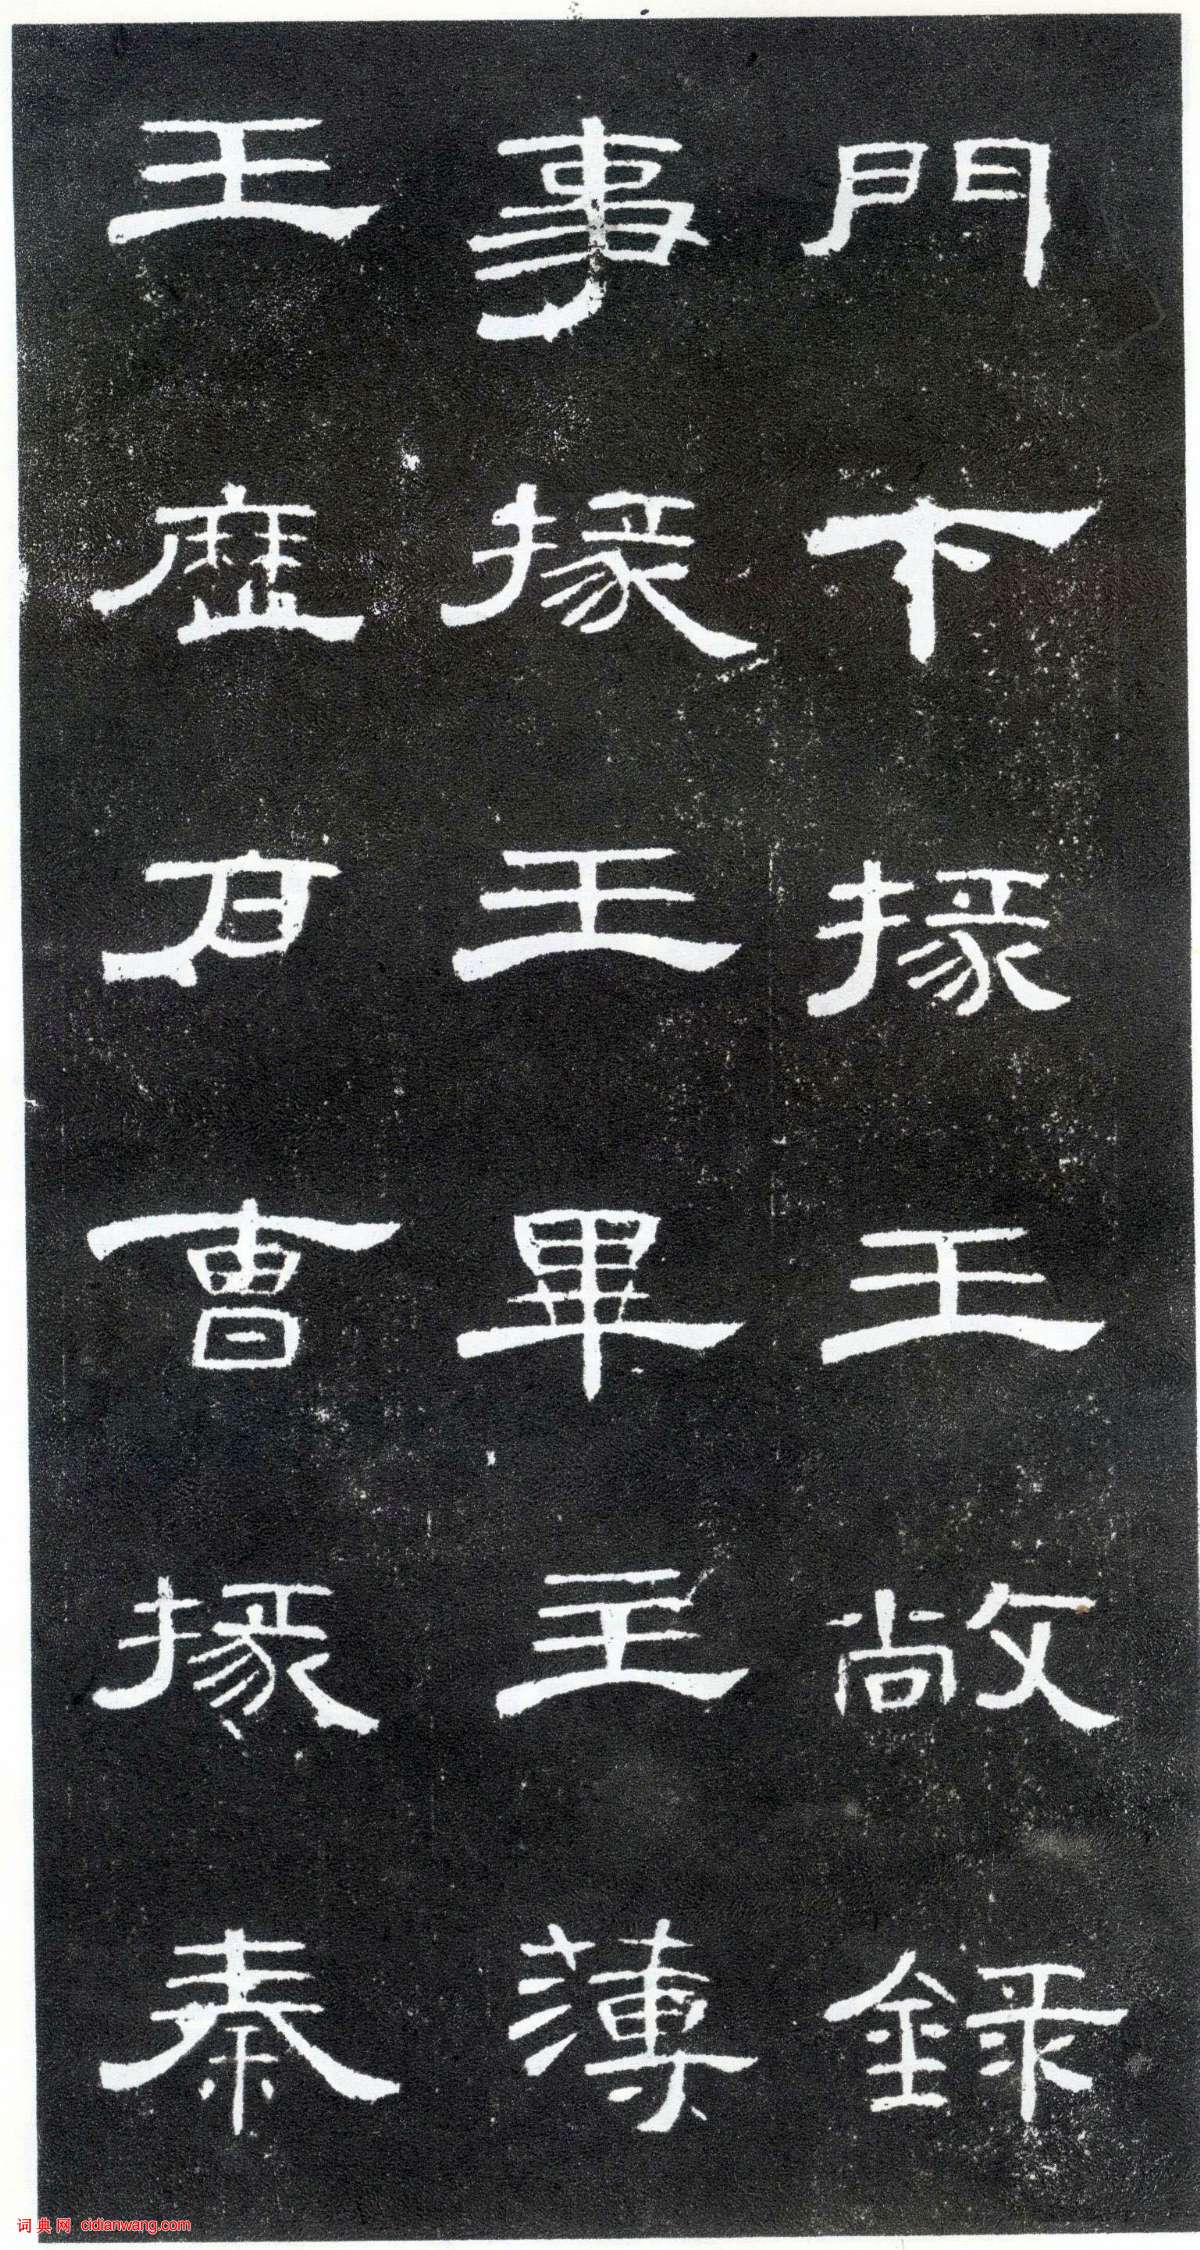 門下掾王敞録
事掾王畢主薄
王歷戶曹掾秦
词典网 cidianwang.com